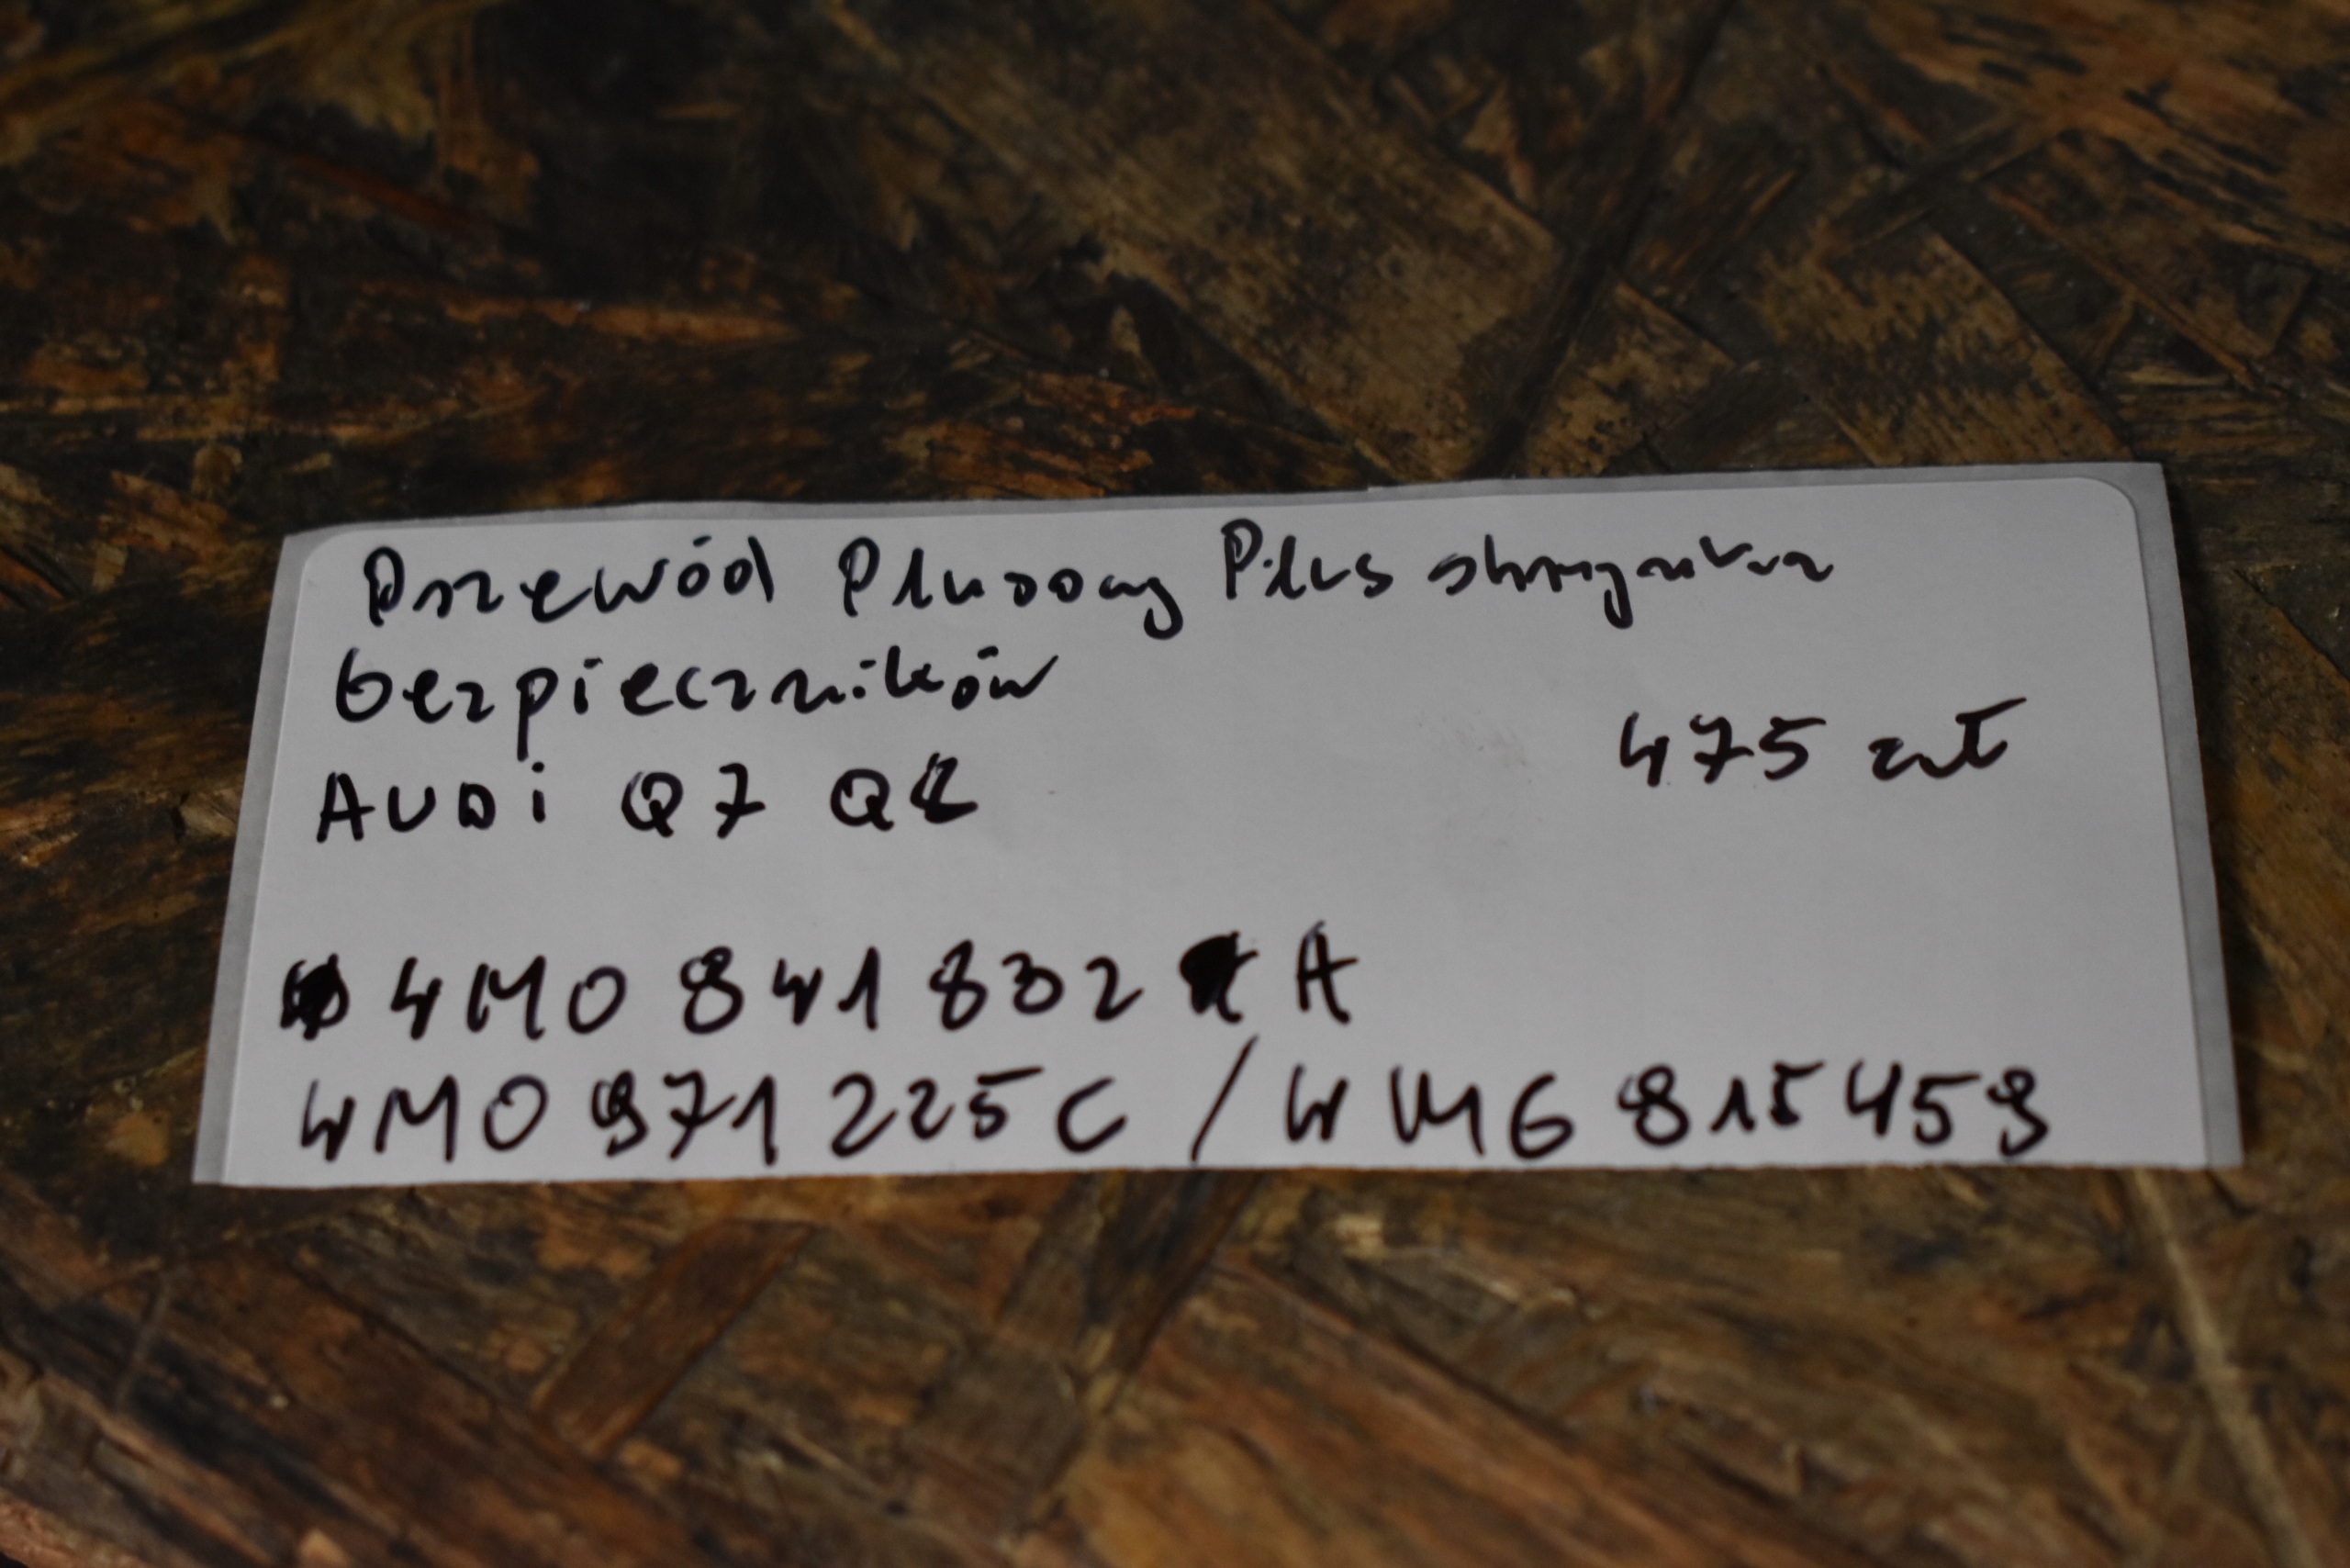 Przewód Plusowy Plus skrzynka
bezpieczników
475 zł
AUDi Q7 Q8
4M0 841 832 A
4M0 971 225 C / 4M6 815 459